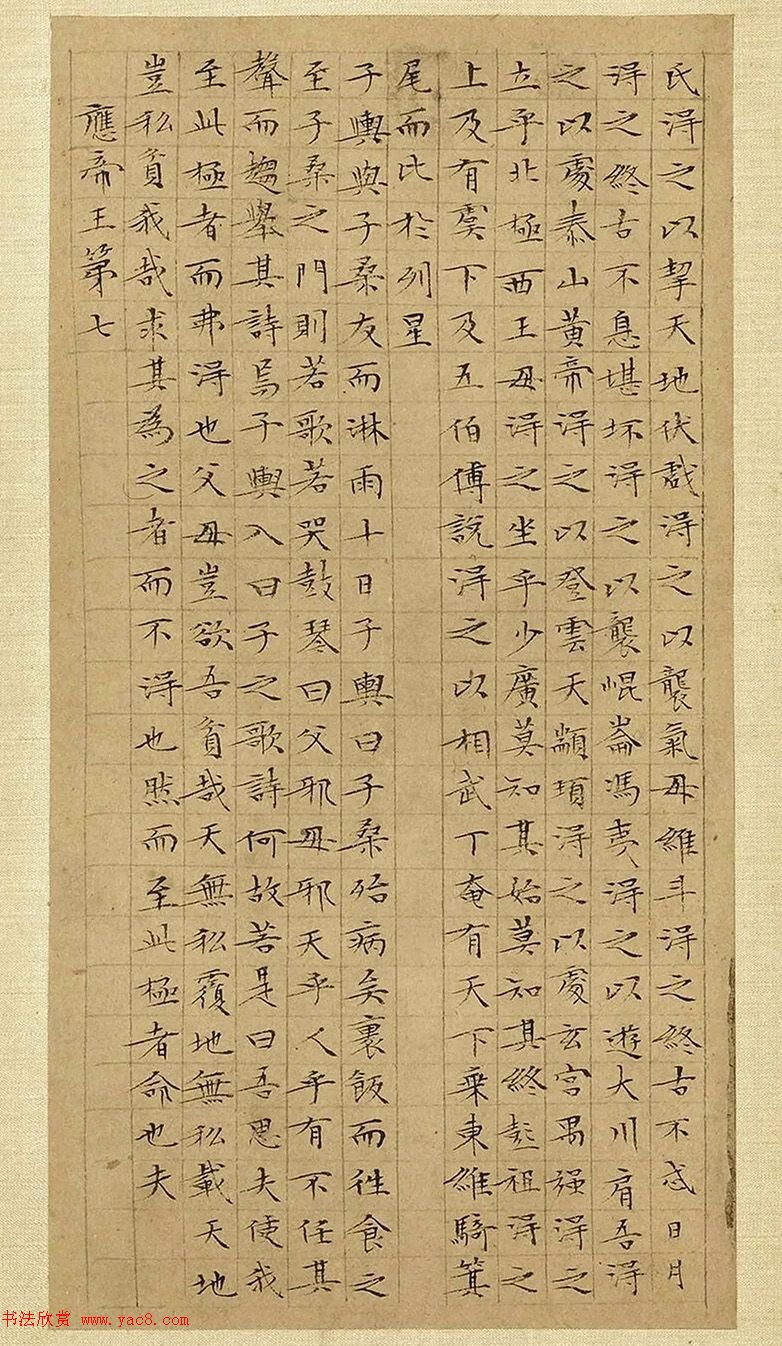 氏得之以挈天地伏戲得之以襲氣母維斗得之終古不忒日月
得之終古不息堪坏得之以襲崐崙馮夷得之以遊大川肩吾得
之以處泰山黃帝得之以登雲天顓頊得之以處玄宮禺强得之
立乎北極西王母得之坐乎少廣莫知其始莫知其終彭祖得之
上及有虞下及五伯傅說得之以相武丁奄有天下乘東維騎箕
尾而比於列星
子輿與子桑友而淋雨十日子輿曰子桑殆病矣裹飯而往食之
至子桑之門則若歌若哭鼓琴曰父邪母邪天乎人乎有不任其
聲而趨舉其詩焉子輿入曰子之歌詩何故若是曰吾思夫使我
至此極者而弗得也父母豈欲吾貧哉天無私覆地無私載天地
豈私貧我哉求其為之者而不得也然而至此極者命也夫
應帝王第七
书法欣赏 www.yac8.com